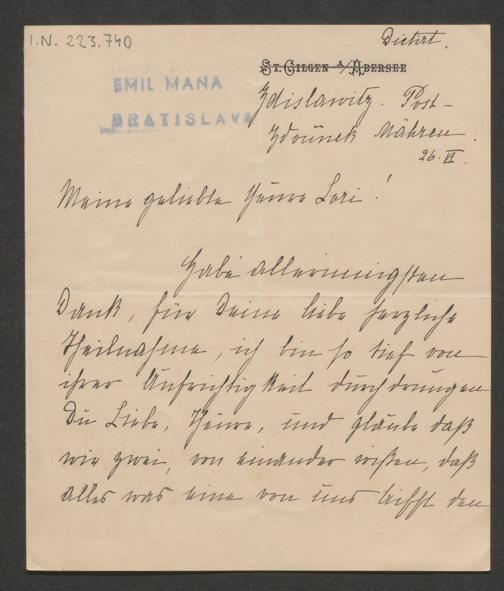 I.N. 223.740
Dictirt.
ST. GILGEN A/ ABERSEE
EMIL MANA
BRATISLAVA
Zdislawitz. Post-
Zdounek Mähren.
26. VI.
Meine geliebte theure Lori!
Habe allerinnigsten
Dank, für Deine liebe herzliche
Theilnahme, ich bin so tief von
ihrer Aufrichtigkeit durchdrungen
Du Liebe, Theure, und glaube daß
wir zwei, von einander wißen, daß
alles was eine von uns trifft den